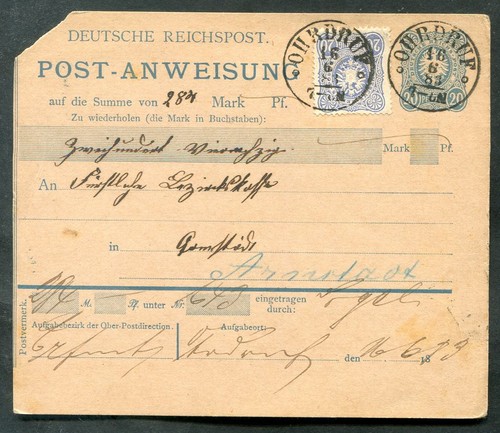 DEUTSCHE REICHSPOST.
POST-ANWEISUNG
OHRDRUF
16
6
83
7-8N
OHRDRUF
16
6
83
20
20
auf die Summe von 284 Mark Pf.
Zu wiederholen (die Mark in Buchstaben):
Zweihundert Mark Pf.
An Fürstliche Bezirkskasse
in Arnstadt
Arnstadt
Postvermerk.
284 M. — Pf. unter Nr. 643 eingetragen durch:
Aufgabebezirk der Ober-Postdirection: Aufgabeort:
Erfurt Ohrdruf den 16 6 1883